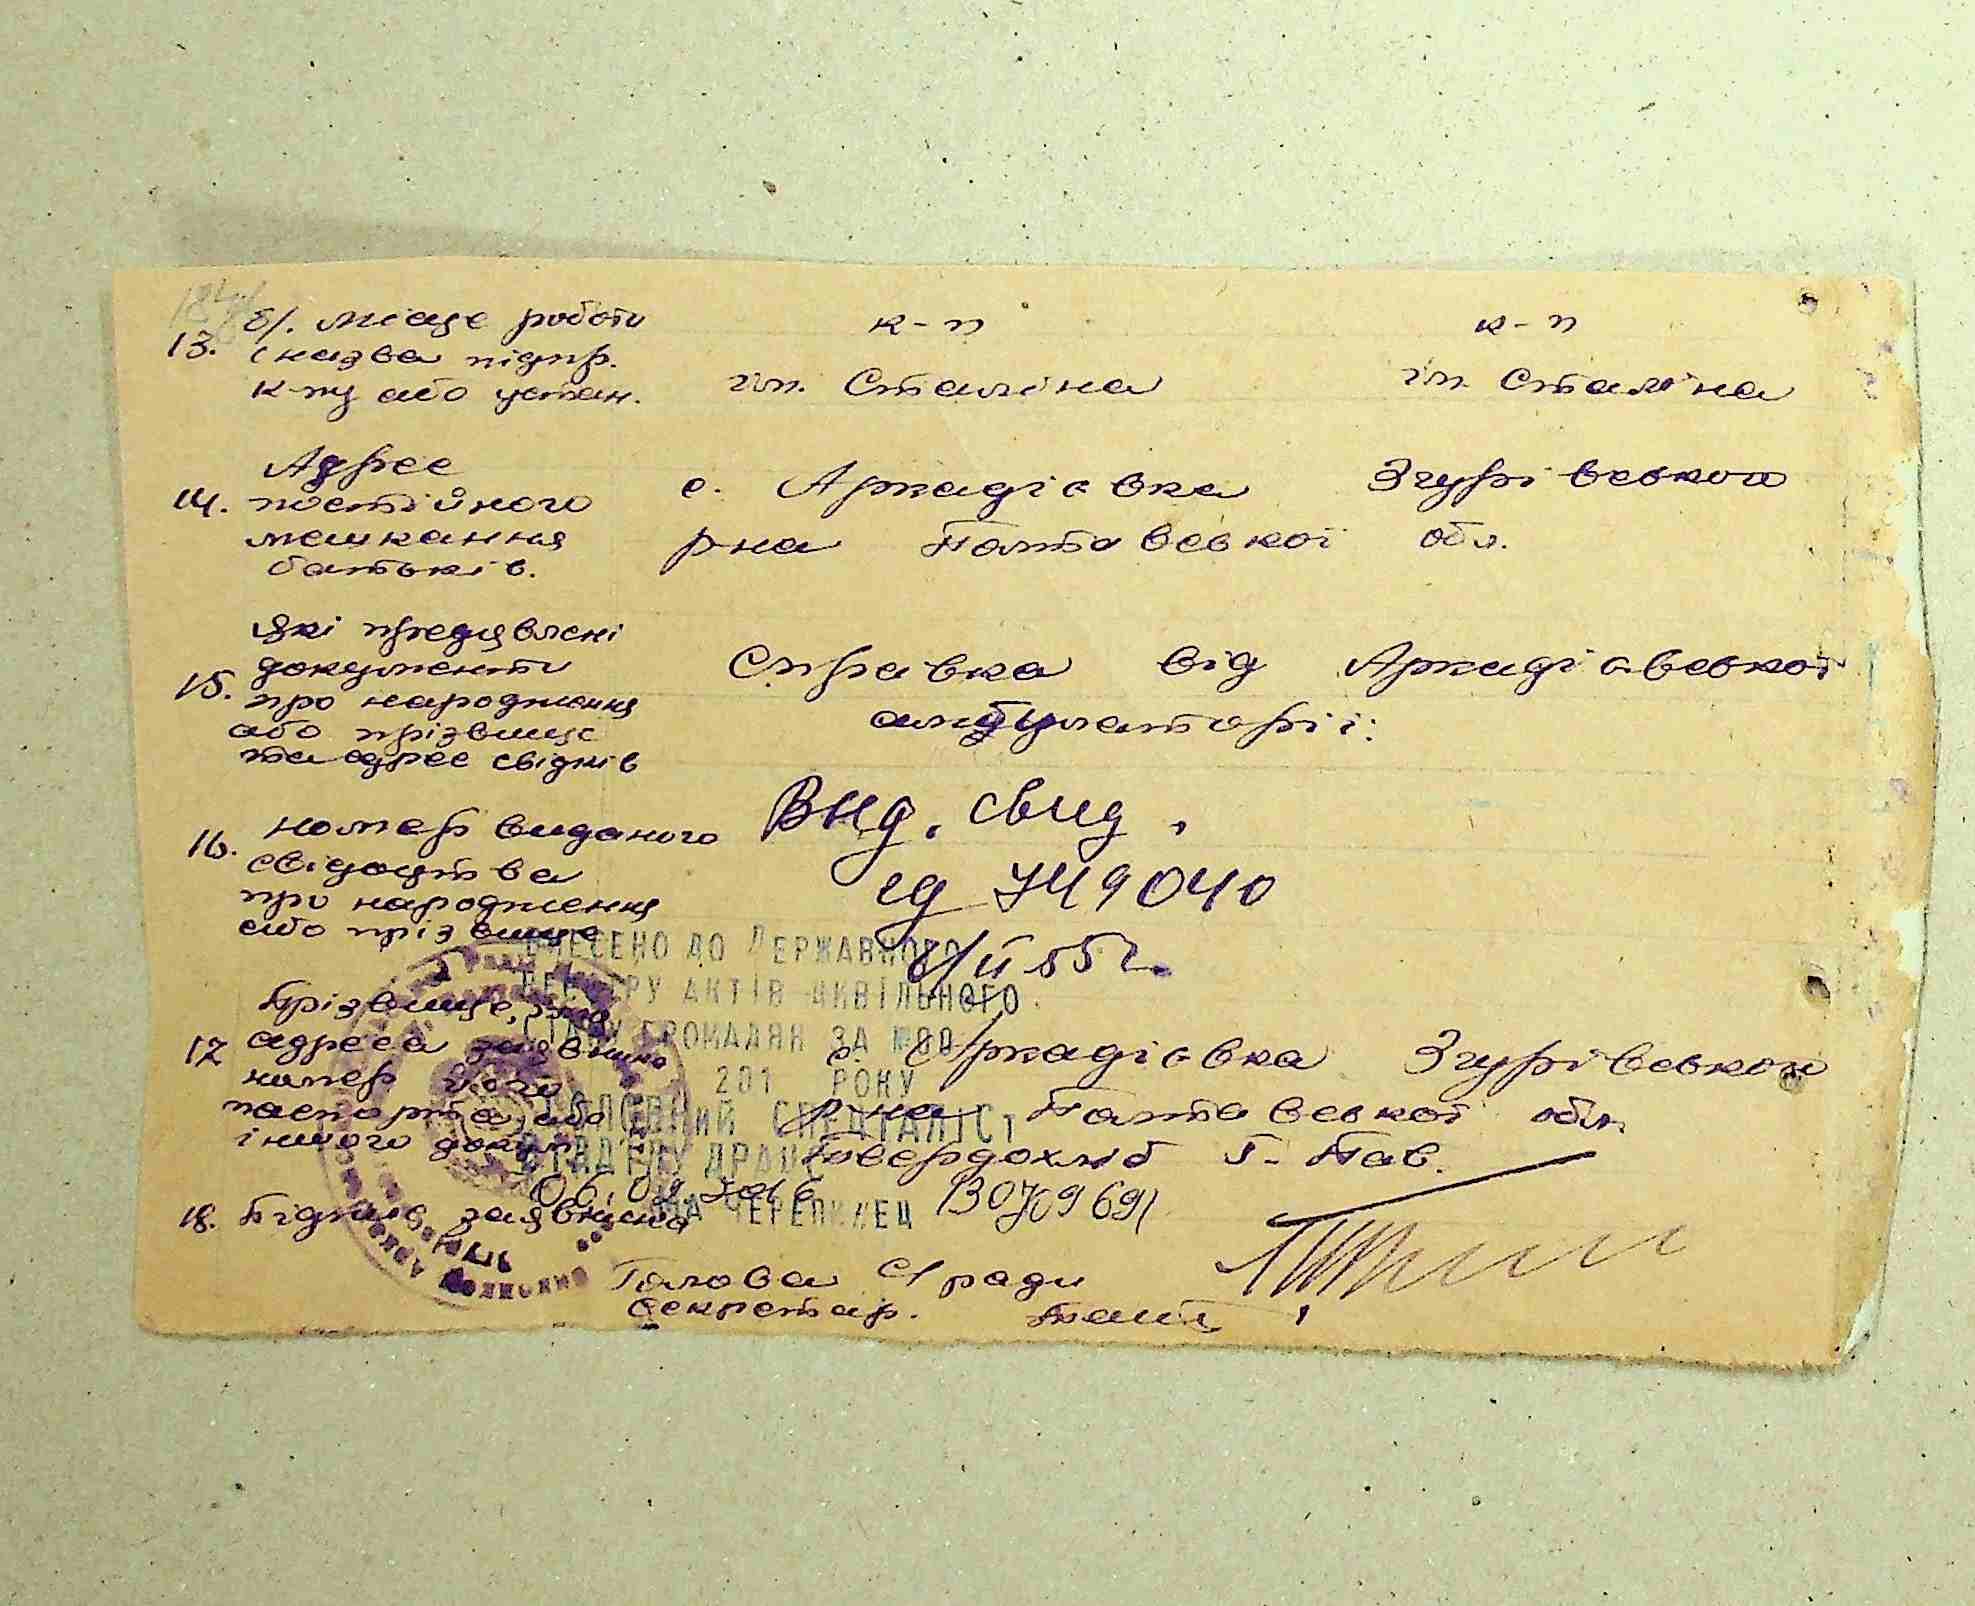 б/. місце роботи к-п к-п
13. і назва підпр.
к-пу або устан. ім. Сталіна ім. Сталіна
Адрес
14. постійного с. Аркадієвка Згурівського
мешкання р-на Полтавської обл.
батьків.
Які предявлені
документи Справка від Аркадієвської
15. про народження амбулаторії:
або прізвище
та адрес свідків
16. номер виданого Выд. свид,
свідоцтва
про народження 749040
або прізвище
ВНЕСЕНО ДО ДЕРЖАВНОГО
РЕЄСТРУ АКТІВ ЦИВІЛЬНОГО
СТАНУ ГРОМАДЯН ЗА №
201 РОКУ
ГОЛОВНИЙ СПЕЦІАЛІСТ
ВІДДІЛУ ДРАЦС
ЧЕРЕПИНЕЦ
06.09.2016
Прізвище, імя
17 адреса заявника с. Аркадієвка Згурівського
номер його р-на Полтавської обл.
паспорта або
іншого докум. Твердохліб Г. Пав.
18. Підпис заявника
Голова С/ради
Секретар.